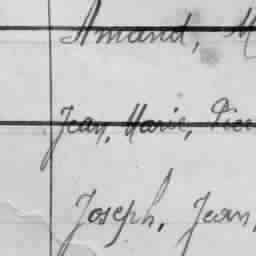 Amand, M
Jean, Marie, Pier
Joseph, Jean,